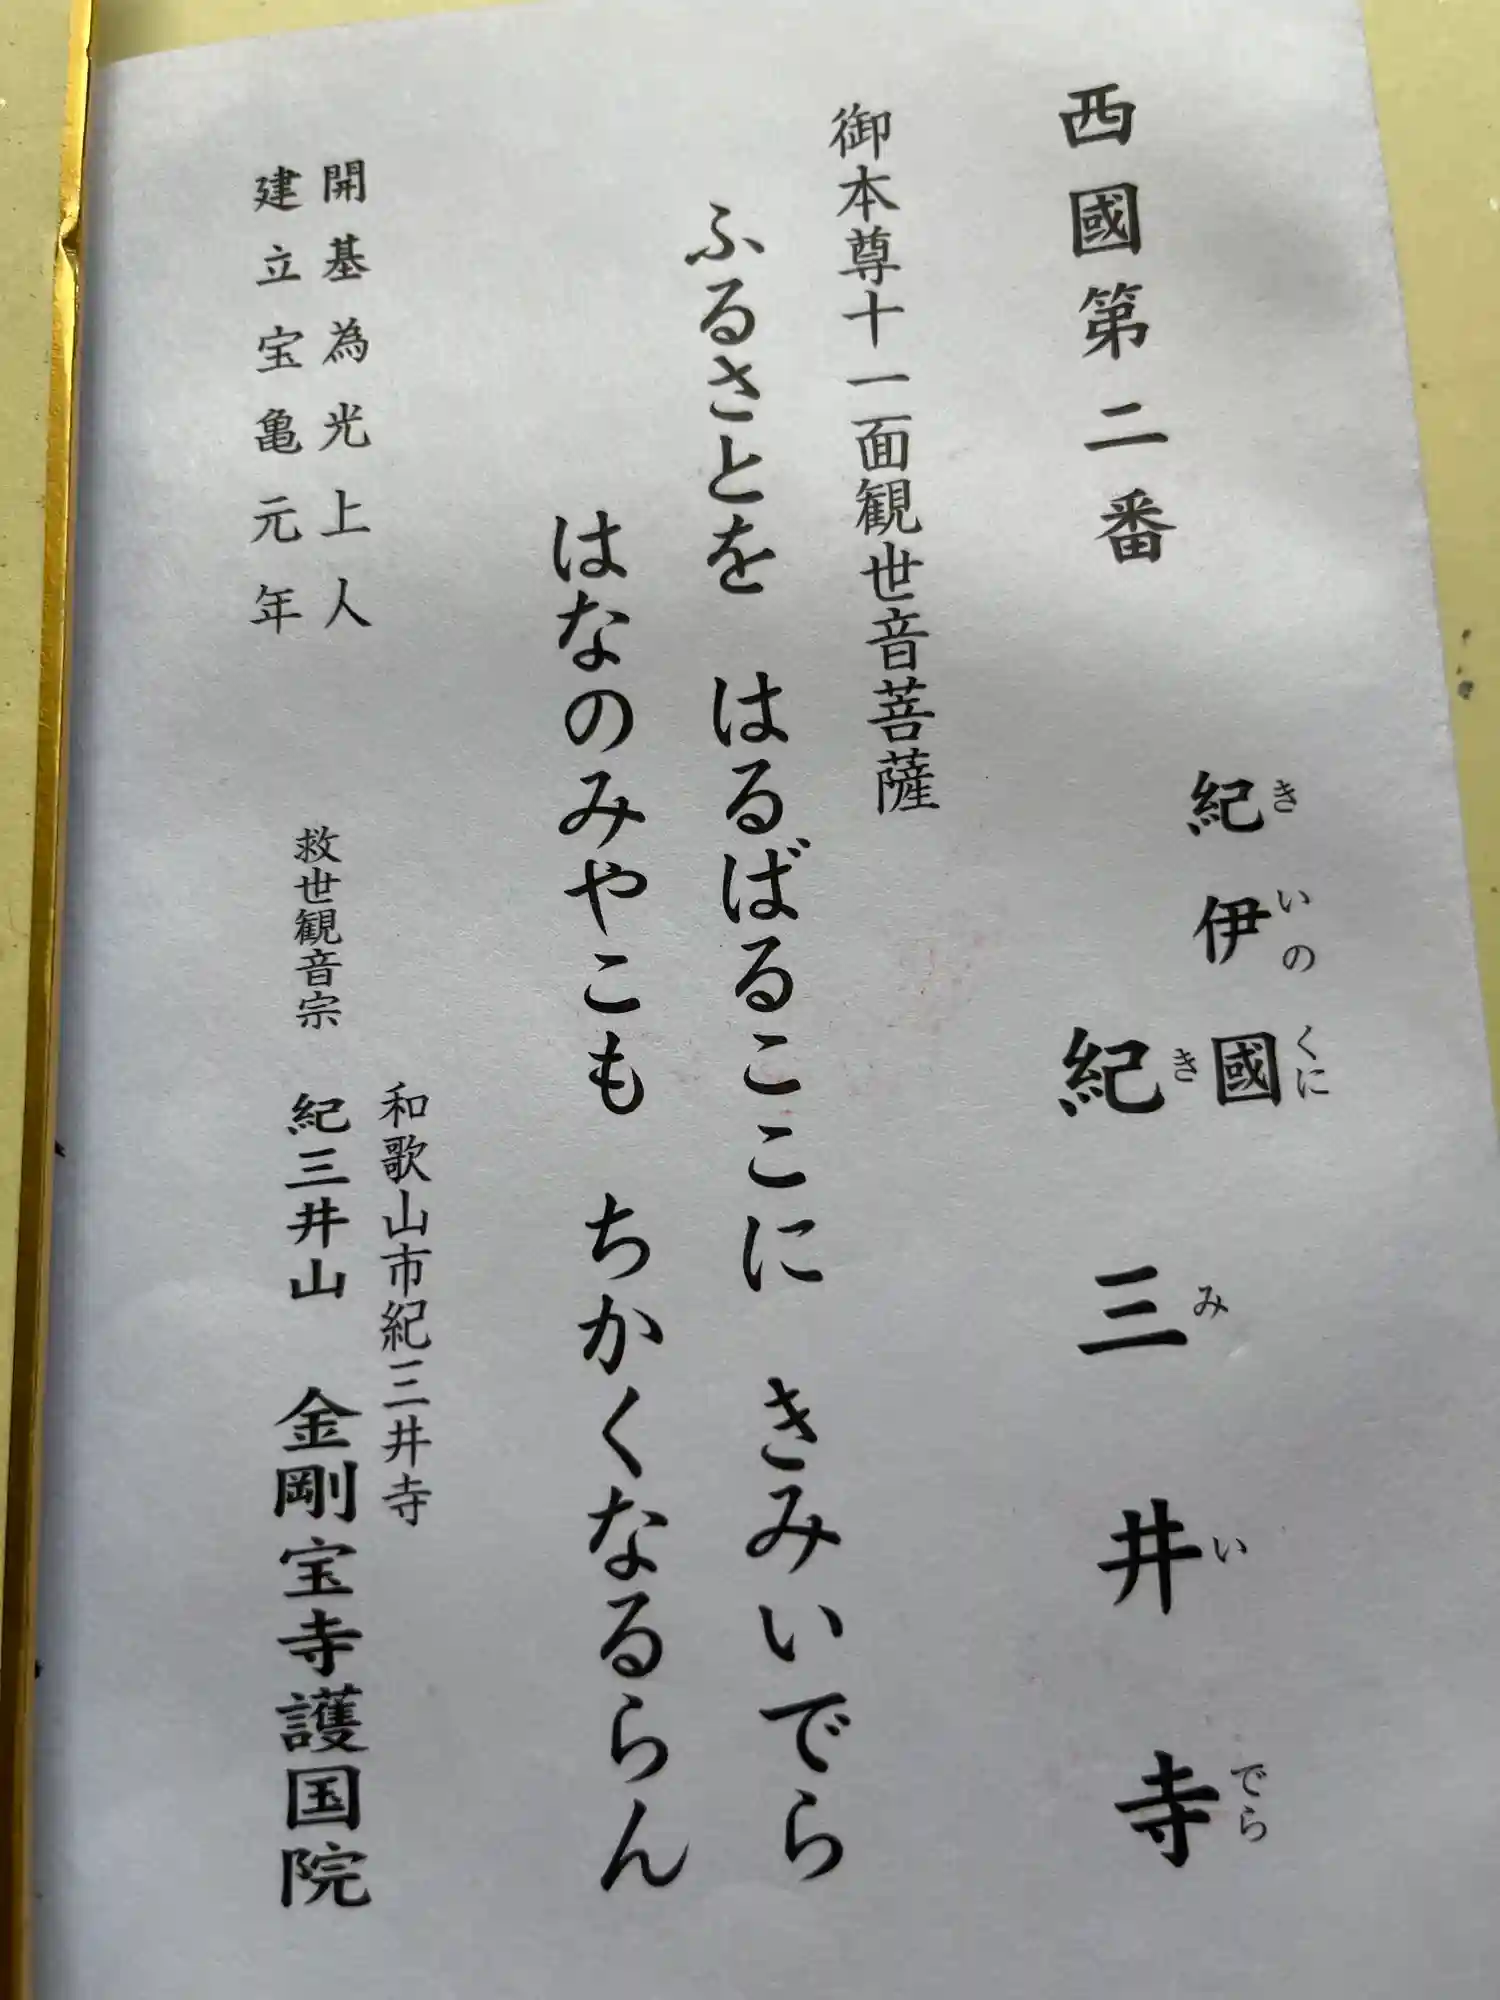 西國第二番
紀伊國
きいのくに
紀三井寺
きみいでら
御本尊十一面観世音菩薩
ふるさとを　はるばるここに　きみいでら
はなのみやこも　ちかくなるらん
開基為光上人
建立宝亀元年
和歌山市紀三井寺
救世観音宗　紀三井山　金剛宝寺護国院